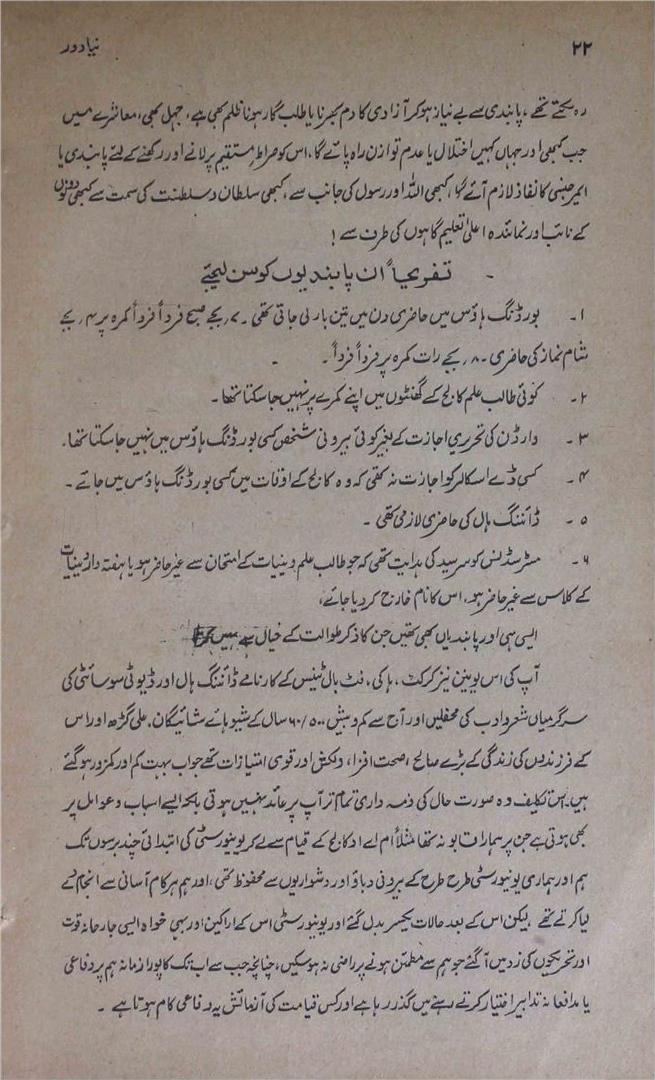 ۲۲ نیا دور
رہ سکتے تھے، پابندی سے بے نیاز ہو کر آزادی کا دم بھرنا یا طلب گار ہونا ظلم بھی ہے، جہل بھی، معاشرے میں
جب کبھی اور جہاں کہیں اختلال یا عدم توازن راہ پائے گا، اس کو صراطِ مستقیم پر لانے اور رکھنے کے لئے پابندی یا
ایمرجنسی کا نفاذ لازم آئے گا، کبھی اللہ اور رسول کی جانب سے، کبھی سلطان و سلطنت کی سمت سے کبھی دونوں
کے نائب اور نمائندہ اعلیٰ تعلیم گاہوں کی طرف سے!
۔ تفریحاً ان پابندیوں کو سن لیجئے
۱۔ بورڈنگ ہاؤس میں حاضری دن میں تین بار لی جاتی تھی۔ ۷ بجے صبح فرداً فرداً کمرہ پر ۴ بجے
شام نماز کی حاضری۔ ۸ بجے رات کمرہ پر فرداً فرداً۔
۲۔ کوئی طالب علم کالج کے گھنٹوں میں اپنے کمرے پر نہیں جا سکتا تھا۔
۳۔ وارڈن کی تحریری اجازت کے بغیر کوئی بیرونی شخص کسی بورڈنگ ہاؤس میں نہیں جا سکتا تھا۔
۴۔ کسی ڈے اسکالر کو اجازت نہ تھی کہ وہ کالج کے اوقات میں کسی بورڈنگ ہاؤس میں جائے۔
۵۔ ڈائننگ ہال کی حاضری لازمی تھی۔
۶۔ مسٹر سڈنس کو سرسید کی ہدایت تھی کہ جو طالب علم دینیات کے امتحان سے غیر حاضر ہو یا ہفتہ وار دینیات
کے کلاس سے غیر حاضر ہو، اس کا نام خارج کر دیا جائے،
ایسی ہی اور پابندیاں بھی تھیں جن کا ذکر طوالت کے خیال سے نہیں
آپ کی اس یونین نیز کرکٹ، ہاکی، فٹ بال ٹینس کے کارنامے ڈائننگ ہال اور ڈیوٹی سوسائٹی کی
سرگرمیاں شعر و ادب کی محفلیں اور آج سے کم و بیش ۵۰/۶۰ سال کے شیوہائے شائیگان، علی گڑھ اور اس
کے فرزندوں کی زندگی کے بڑے صالح، صحت افزا، دلکش اور قومی امتیازات تھے جو اب بہت کم اور کمزور ہو گئے
ہیں۔ اس تکلیف دہ صورت حال کی ذمہ داری تمام تر آپ پر عائد نہیں ہوتی بلکہ ایسے اسباب و عوامل پر
بھی ہوتی ہے جن پر ہمارا قابو نہ تھا مثلاً ام اے او کالج کے قیام سے لے کر یونیورسٹی کی ابتدائی چند برسوں تک
ہم اور ہماری یونیورسٹی طرح طرح کے بیرونی دباؤ اور دشواریوں سے محفوظ تھی، اور ہم ہر کام آسانی سے انجام دے
لیا کرتے تھے لیکن اس کے بعد حالات یکسر بدل گئے اور یونیورسٹی اس کے اراکین اور بہی خواہ ایسی جارحانہ قوت
اور تحریکوں کی زد میں آ گئے جو ہم سے مطمئن ہونے پر راضی نہ ہو سکیں، چنانچہ جب سے اب تک کا پورا زمانہ ہم پر دفاعی
یا مدافعانہ تدابیر اختیار کرتے رہنے میں گذر رہا ہے اور کس قیامت کی آزمائش یہ دفاعی کام ہوتا ہے۔